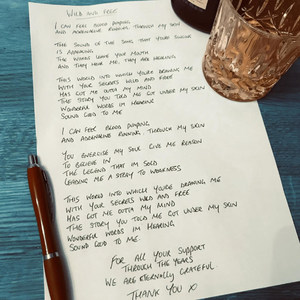 WILD AND FREE
I CAN FEEL BLOOD PUMPING
AND ADRENALINE RUNNING THROUGH MY SKIN
THE SOUND OF THE SOUL THAT YOU'RE
IS APPEARING
THE WORDS LEAVE YOUR MOUTH
AND THEY HEAR ME, THEY ARE HEALING
THIS WORLD INTO WHICH YOU'RE DRAWING ME
WITH YOUR SECRETS WILD AND FREE
HAS GOT ME OUTTA MY MIND
THE STORY YOU TOLD ME GOT UNDER MY SKIN
WONDERFUL WORDS IM HEARING
SOUND GOOD TO ME
I CAN FEEL BLOOD PUMPING
AND ADRENALINE RUNNING THROUGH MY SKIN
YOU EXERCISE MY SOUL GIVE ME REASON
TO BELIEVE IN
THE LEGEND THAT IM SOLD
LEADING ME A STORY TO
THIS WORLD INTO WHICH YOU'RE DRAWING ME
WITH YOUR SECRETS WILD AND FREE
HAS GOT ME OUTTA MY MIND
THE STORY YOU TOLD ME GOT UNDER MY SKIN
WONDERFUL WORDS IM HEARING
SOUND GOOD TO ME
FOR ALL YOUR SUPPORT
THROUGH THE YEARS
WE ARE ETERNALLY GRATEFUL
THANK YOU X